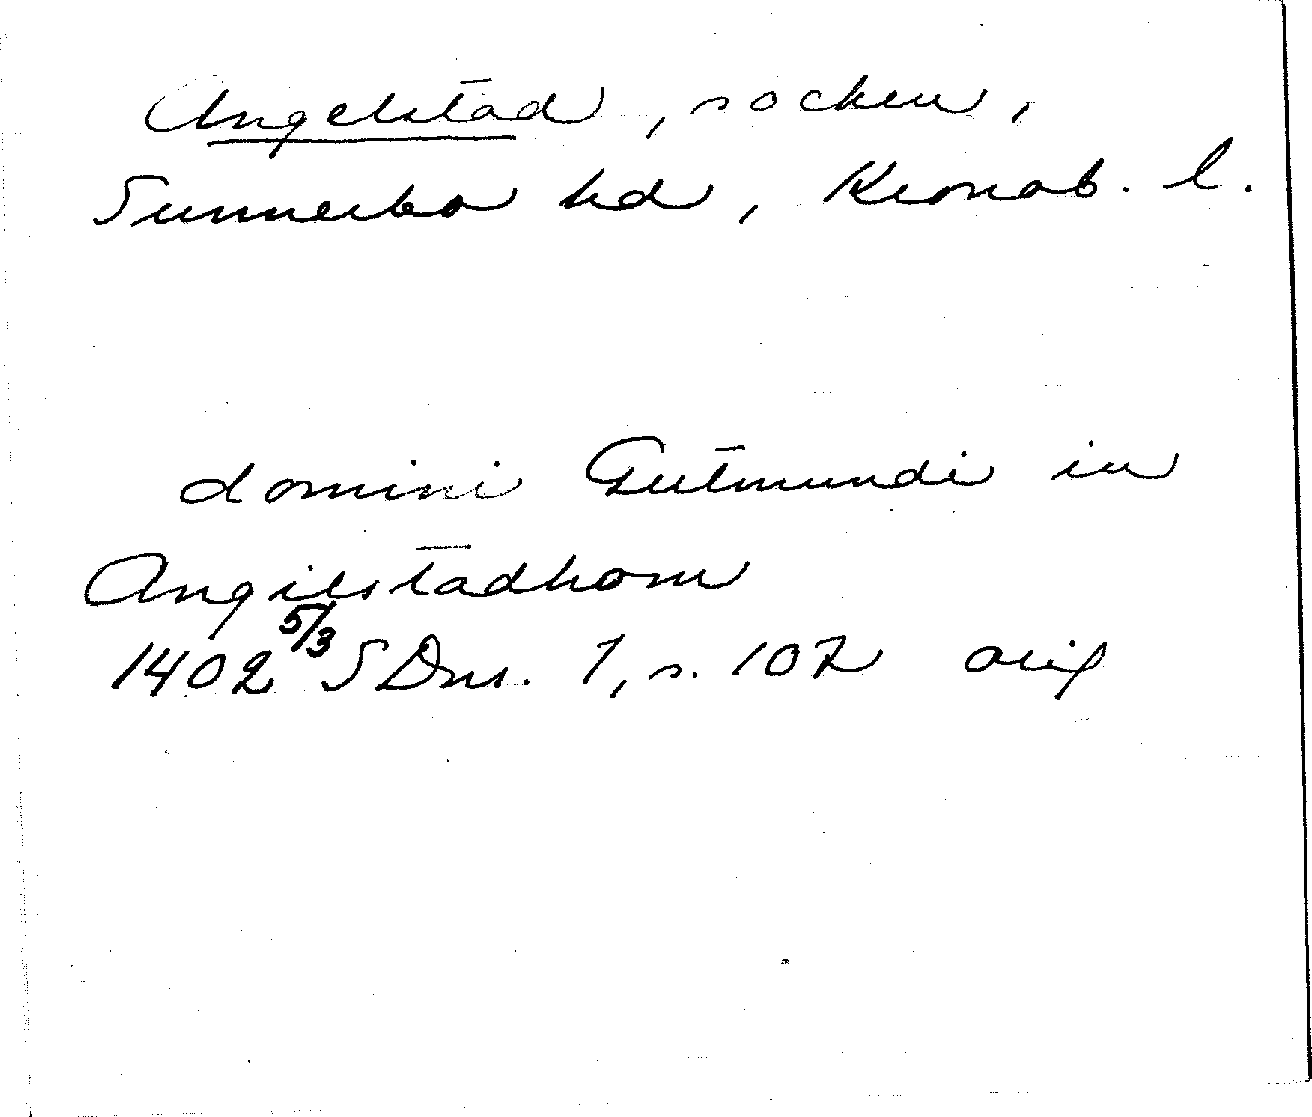 Angelstad, socken,
Sunnerbo hd, Kronob. l.
domini Gutmundi in
Angilstadhom
1402 5/3 SDns. 1, s. 102 orig